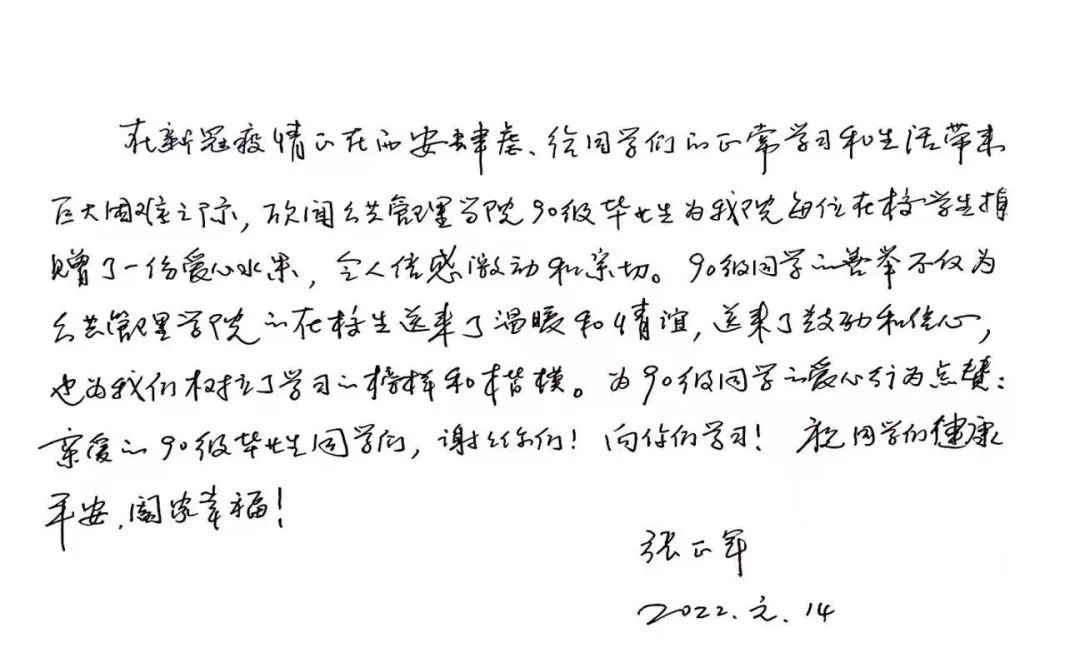 在新冠疫情正在西安肆虐、给同学们的正常学习和生活带来
巨大困难之际，欣闻公共管理学院90级毕业生为我院每位在校学生捐
赠了一份爱心水果，令人倍感激动和亲切。90级同学的善举不仅为
公共管理学院的在校生送来了温暖和情谊，送来了鼓励和信心，
也为我们树立了学习的榜样和楷模。为90级同学的爱心行为点赞：
亲爱的90级毕业生同学们，谢谢你们！向你们学习！祝同学们健康
平安，阖家幸福！
张正军
2022.元.14